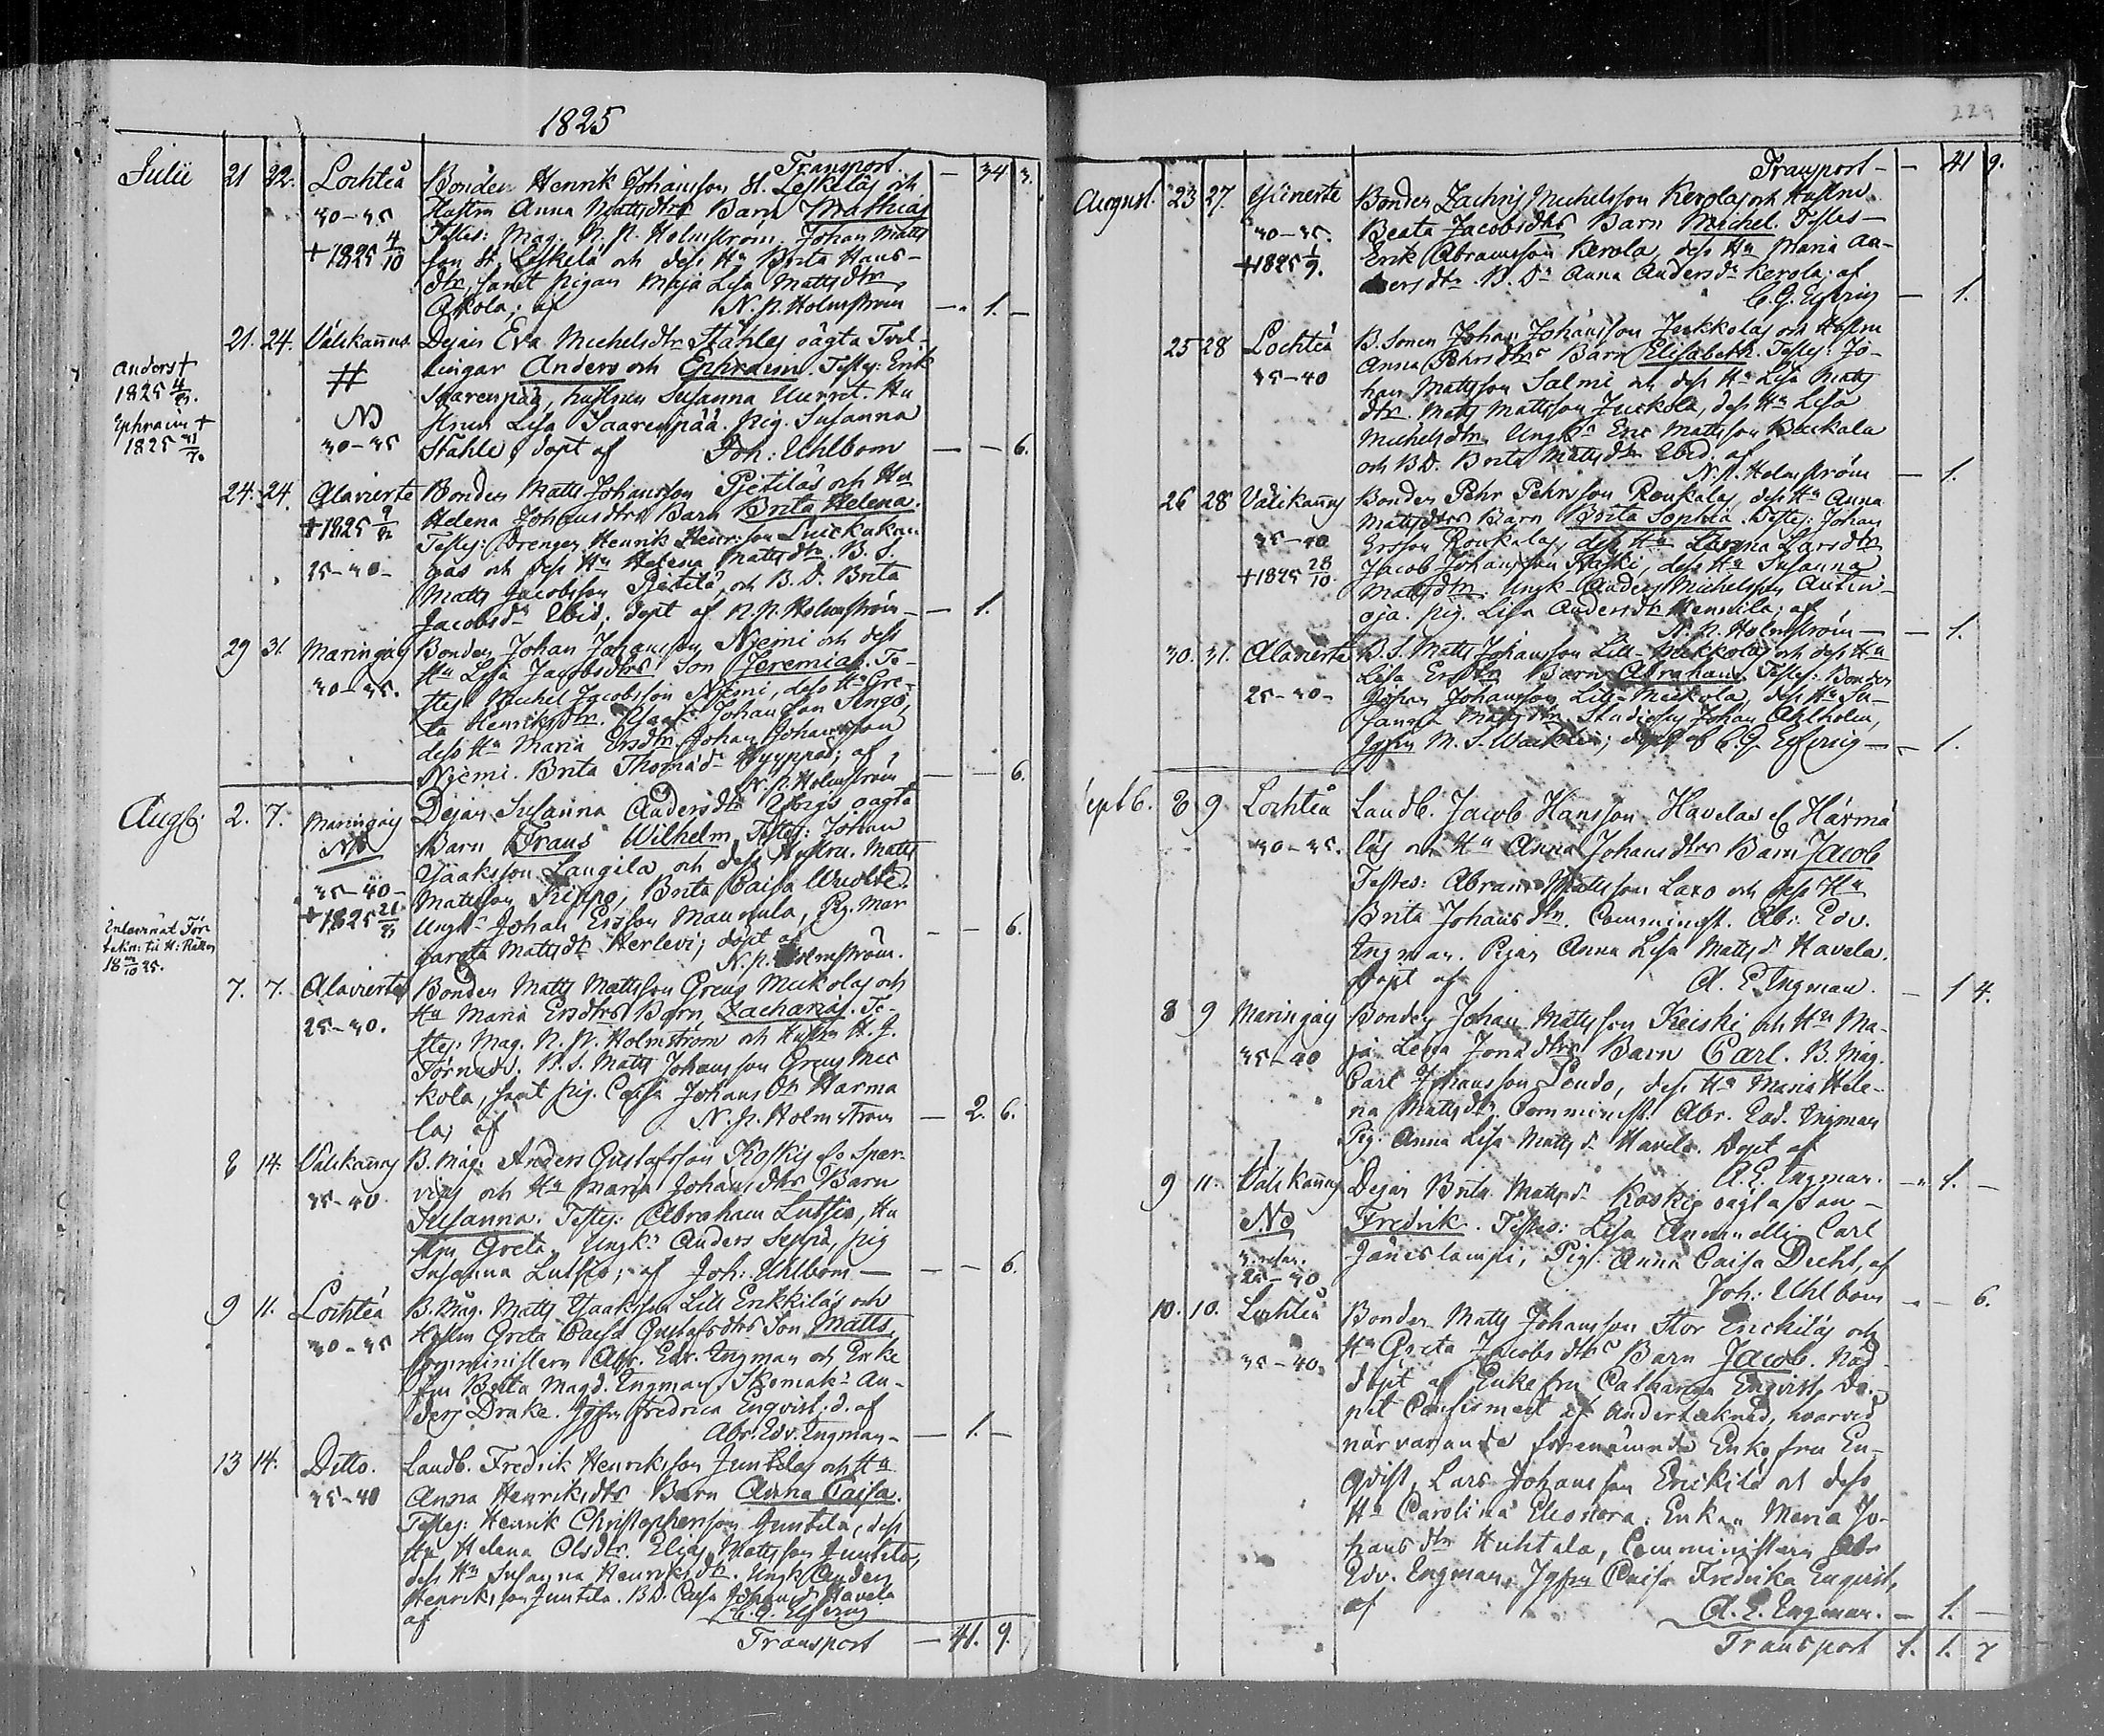 1825
Transport — 34 3.
Julii 21 22. Lochteå Bonden Henrik Johansson st. Leskeläs och
30-35 Hustru Anna Mattsdtrs Barn Mathias
Testes: Mag. N. N. Holmström. Johan Matts
+ 1825 4/10 son st. Leskelä och dess Hu Brita Hans-
dtr, samt pigan Maja Lisa Mattsdtr
Akola; af N. N. Holmström — 1. —
21. 24. Välikannus Dejan Eva Michelsdtr Ståhles oägta Tvil-
Anders + lingar Anders och Ephraim. Testes: Erik
1825 # Saarenpää, hustrun Susanna
Ephraim + No strun Lisa Saarenpää. pig. Susanna
1825 30-35 Ståhle, döpt af Joh: Uhlbom — — 6.
24. 24. Alavierte Bonden Matts Johansson Pjetiläs och Hu
+ 1825 Helena Johansdtrs Barn Brita Helena.
Testes: Drengen Henrik Henrsson
25-30- gas och dess Hu Helena Mattsdtr. B. S.
Matts Jacobsson Pjetilä, och B. D. Brita
Jacobsdr ibid; döpt af N. N. Holmström — — 1.
29 31. Maringais Bonden Johan Johansson Njemi och dess
30-35. Hu Lisa Jacobsdtrs Son Jeremias. Te-
stes: Michel Jacobsson Njemi, dess Hu Gre-
ta Henriksdtr. Isaac Johansson
dess Hu Maria Ersdtr Johan Johansson
Njemi. Brita Thomædr Hyyppä; af
N. N. Holmström — — 6.
Augsti 2. 7. Maringais Dejan Susanna Andersdtr oägta
No Barn Frans Wilhelm. Testes: Johan
Isaaksson Laugila och dess Hustru. Matts
35-40- Mattsson Brita Caisa
+ 1825 Ungkn Johan Ersson Maunula, Pig. Mar
gareta Mattsdtr Herlevi; döpt af — — 6.
N. N. Holmström.
7. 7. Alavierte Bonden Matts Mattsson Greus Mickolas och
25-30. Hu Maria Ersdtrs Barn Zacharias. Te-
stes: Mag. N. N. Holmström och H. J.
Törnudd. B. S. Matts Johansson Greus Mic
kola, samt pig. Caisa Johans Dtr Harma
la; af N. N. Holmström — 2. 6.
8 14. Välikannus B. Måg. Anders Gustafsson
35-40. och Hu Maria Johansdtrs Barn
Susanna. Testes: Abraham Hu
strun Greta, Ungkn Anders Seppä, pig
Susanna af Joh: Uhlbom — — — 6.
9 11. Lochteå B. Måg. Matts Isaaksson Lill Erikkiläs och
30-35 Hustru Greta Caisa Gustafsdtrs Son Matts.
Comministern Abr. Edv. Ingman och Enke
fru Brita Magd. Ingman, Skomak: An-
ders Drake. Jgfru Fredrica Enqvist. d. af
Abr: Edv. Ingman — 1. —
13 14. Ditto. Landb. Fredrik Henriksson Juntilas och Hu
35-40 Anna Henriksdtrs Barn Anna Caisa.
Testes: Henrik Christophersson Juntila, dess
Hu Helena Olsdtr. Elias Mattsson Juntila,
dess Hu Susanna Henriksdtr. Ungk Anders
Henriksson Juntila. B.D. Caisa Johansdr Havela
af
Transport — 41. 9.
229
Transport — 41 9.
August. 23 27. Bonden Zachris Michelsson Kerolas och Hustru
30-35. Beata Jacobsdtrs Barn Michel. Testes —
+ 1825 1/9. Erik Abramsson Kerola, dess Hu Maria An-
dersdtr. B. Dr Anna Andersdr Kerola; af
— 1.
25 28 Lochteå B. Sonen Johan Johansson Juckolas och Hustru
35-40 Anna Pehrsdtrs Barn Elisabeth. Testes: Jo-
han Mattsson Salmi och dess Hu Lisa Matts
dtr. Matts Mattsson Juckola, dess Hu Lisa
Michelsdtr. Ungkn Eric Mattsson Backala
och B.D. Brita Mattsdtr ibid; af
N. N. Holmström — 1.
26 28 Välikannus Bonden Pehr Pehrsson Roukalas, dess Hu Anna
Mattsdtrs Barn Brita Sophia. Testes: Johan
35-40 Ersson Roukala, dess Hu Larsdtr
+ 1825 28/10. Jacob Johansson Kaski, dess Hu Susanna
Mattsdtr. Ungk. Anders Michelsson Autio-
oja. pig. Lisa Andersdtr af
N. N. Holmström — — 1.
30. 31. Alavierte B. S. Matts Johansson Lill-Mickolas och dess Hu
25-30- Lisa Ersdtrs Barn Abraham. Testes: Bonden
Johan Johansson Lill-Mickola, dess Hu Su-
sanna Mattsdtr. Studiosus Johan Ahlholm,
Jgfru M. S. Wacklin; döpt af — 1.
Septb. 8 9 Lochteå Landb. Jacob Hansson Havelas el Härmä
30-35. läs och Hu Anna Johansdtrs Barn Jacob
Testes: Abram Mattsson Laxo och dess Hu
Brita Johansdtr. Comminist. Abr: Edv.
Ingman. Pigan Anna Lisa Mattsdr Havela.
Döpt af A. E. Ingman. — 1 4.
8 9 Maringais Bonden Johan Mattsson Keiski och Hu Ma-
35-40 ja Lena Jonædtrs Barn Carl. B. Måg.
Carl Johansson dess Hu Maria Hele-
na Mattsdtr. Comminist: Abr. Edv. Ingman
Pig. Anna Lisa Mattsdr Havela. Döpt af
A. E. Ingman. — 1. —
9 11. Välikannus Dejan Brita Mattsdr Koskis oägta son —
No Fredrik. Testes: Lisa Carl
25-30 Pig. Anna Caisa Decht, af
Joh: Uhlbom — — 6.
10. 10. Lochteå Bonden Matts Johansson Stor Erickiläs och
35-40. Hu Greta Jacobsdtrs Barn Jacob. Nöd
döpt af Enkefru Catharina Enqvist, Do-
pet Confirmert af undertecknad, hvarved
närvarande förenämnde Enkefru En-
qvist, Lars Johansson Erickilä och dess
Hu Carolina Eleonora. Enkan Maria Jo-
hansdtr Huhtala, Comministern Abr
Edv. Ingman, Jgfru Caisa Fredrika Enqvist,
af A. E. Ingman. — 1. —
Transport 1. 1. 7